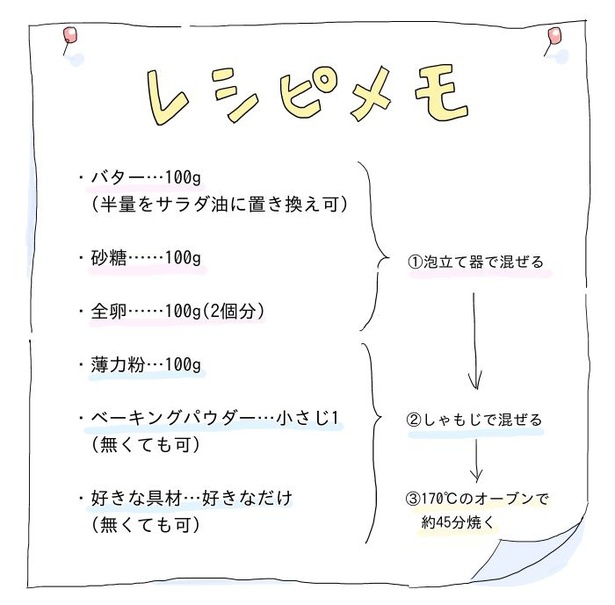 レシピメモ
・バター…100g
（半量をサラダ油に置き換え可）
・砂糖……100g
・全卵……100g(2個分)
①泡立て器で混ぜる
・薄力粉…100g
・ベーキングパウダー…小さじ1
（無くても可）
②しゃもじで混ぜる
・好きな具材…好きなだけ
（無くても可）
③170℃のオーブンで
約45分焼く